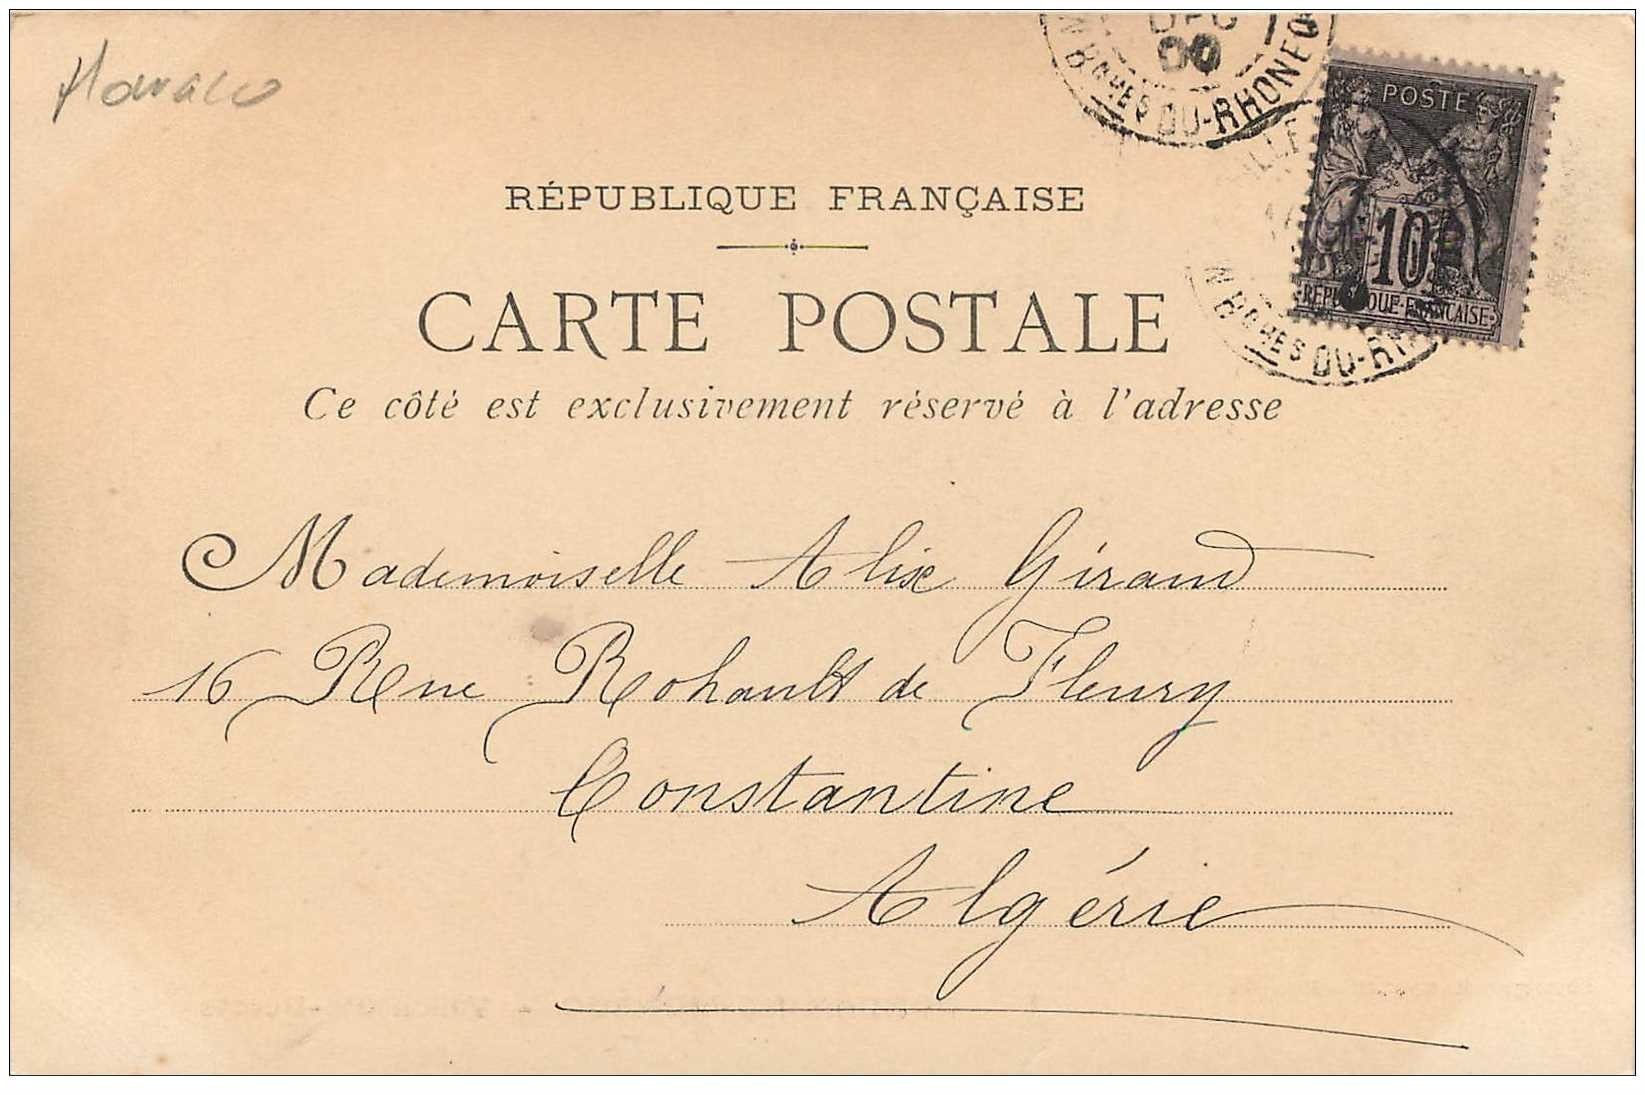 Monaco
DEC
00
Bches DU-RHONE
POSTE
10
REPUBLIQUE-FRANCAISE
Bches DU-RH
RÉPUBLIQUE FRANÇAISE
CARTE POSTALE
Ce côté est exclusivement réservé à l'adresse
Mademoiselle Alix Giraud
16 Rue Rohault de Fleury
Constantine
Algérie